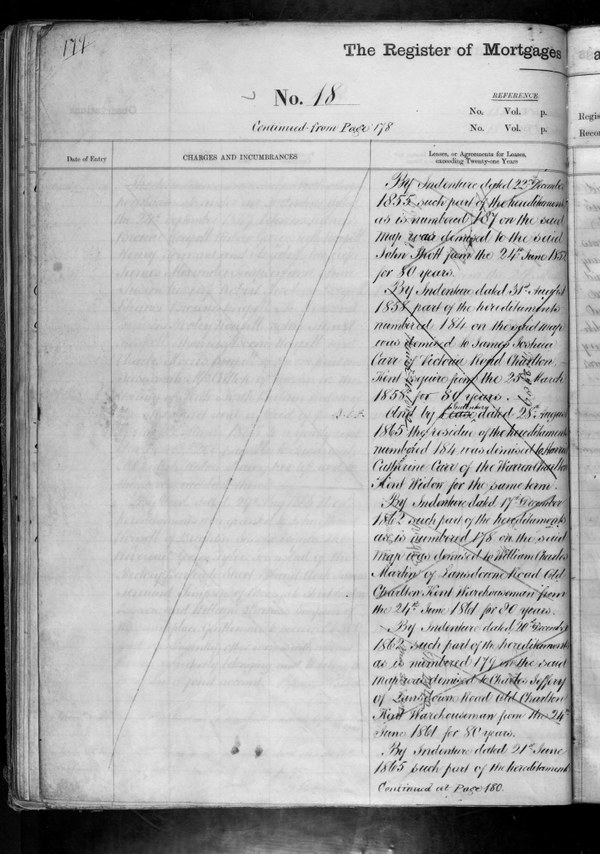 179
The Register of Mortgages
No. 18
REFERENCE
No. Vol. p.
Continued from Page 178
No. Vol. p.
Date of Entry
CHARGES AND INCUMBRANCES
Leases, or Agreements for Leases,
exceeding Twenty-one Years
By Indenture dated 22nd December
1855 such part of the hereditaments
as is numbered 187 on the said
map was demised to the said
John Stott from the 24th June 185
for 80 years.
By Indenture dated 31st August
1858 part of the hereditaments
numbered 184 on the said map
was demised to James Joshua
Carr of Victoria Road Charlton
Kent Esquire from the 25th March
1858 for 84 years.
And by Indenture dated 28th August
1865 the residue of the hereditaments
numbered 184 was demised to
Catherine Carr of the Warren Charlton
Kent Widow for the same term.
By Indenture dated 17th December
1862 such part of the hereditaments
as is numbered 178 on the said
map was demised to William Charles
Martin of Lansdowne Road Old
Charlton Kent Warehouseman from
the 24th June 1861 for 80 years.
By Indenture dated 20th December
1862 such part of the hereditaments
as is numbered 179 on the said
map was demised to Charles Jeffery
of Lansdown Road Old Charlton
Kent Warehouseman from the 24th
June 1861 for 80 years.
By Indenture dated 21st June
1865 such part of the hereditaments
Continued at Page 180.